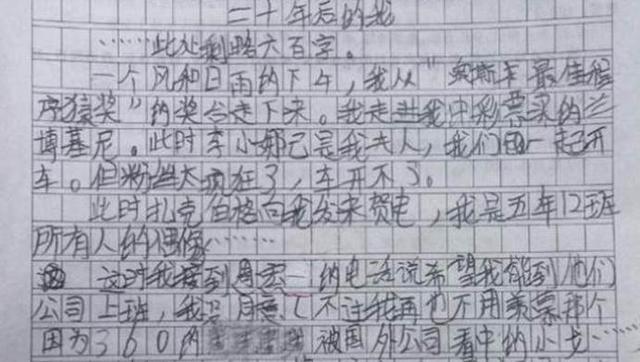 二十年后的我
……此处剩略六百字。
一个风和日雨的下午，我从“奥斯卡最佳程
序猿奖”的奖台走下来。我走进我中彩票买的兰
博基尼。此时李小娜已是我夫人，我们 一起开
车。但粉丝太疯狂了，车开不了。
此时扎克伯格向我发来贺电，我是五年12班
所有人的偶像……
这时我接到 的电话说希望我能到他们
公司上班，我 不过我再也不用 那个
因为360的 被国外公司看中的小